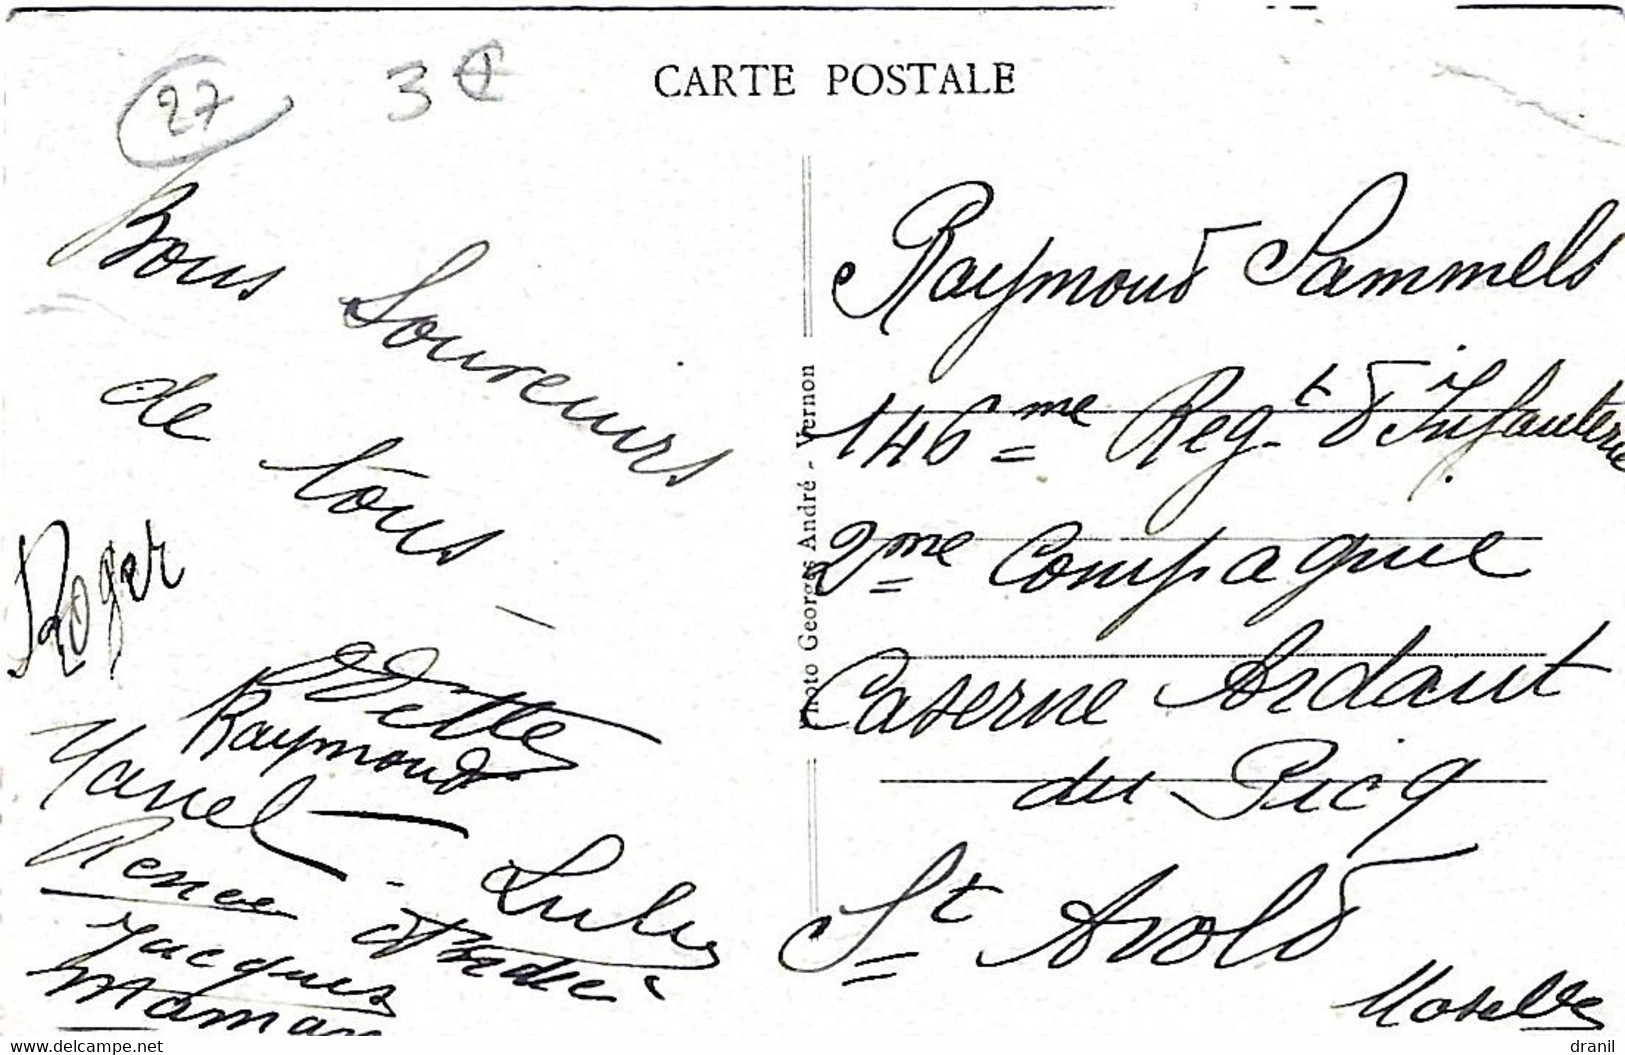 CARTE POSTALE
27
3€
Bons Souvenirs
de tous
Roger
Odette
Raymond
Marcel
Renee
Lulu
André
Jacques
Maman
Photo Georges André - Vernon
Raymond Sammels
146=me Reg-t d'Infanterie
2me Compagnie
Caserne Ardant
du Picq
St Avold
Moselle
www.delcampe.net
dranil